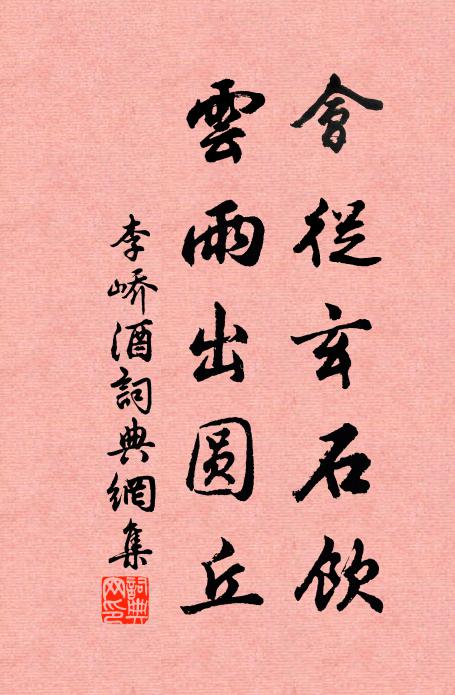 會從玄石飲
雲雨出圆丘
李嶠酒詞典網集
詞典网印